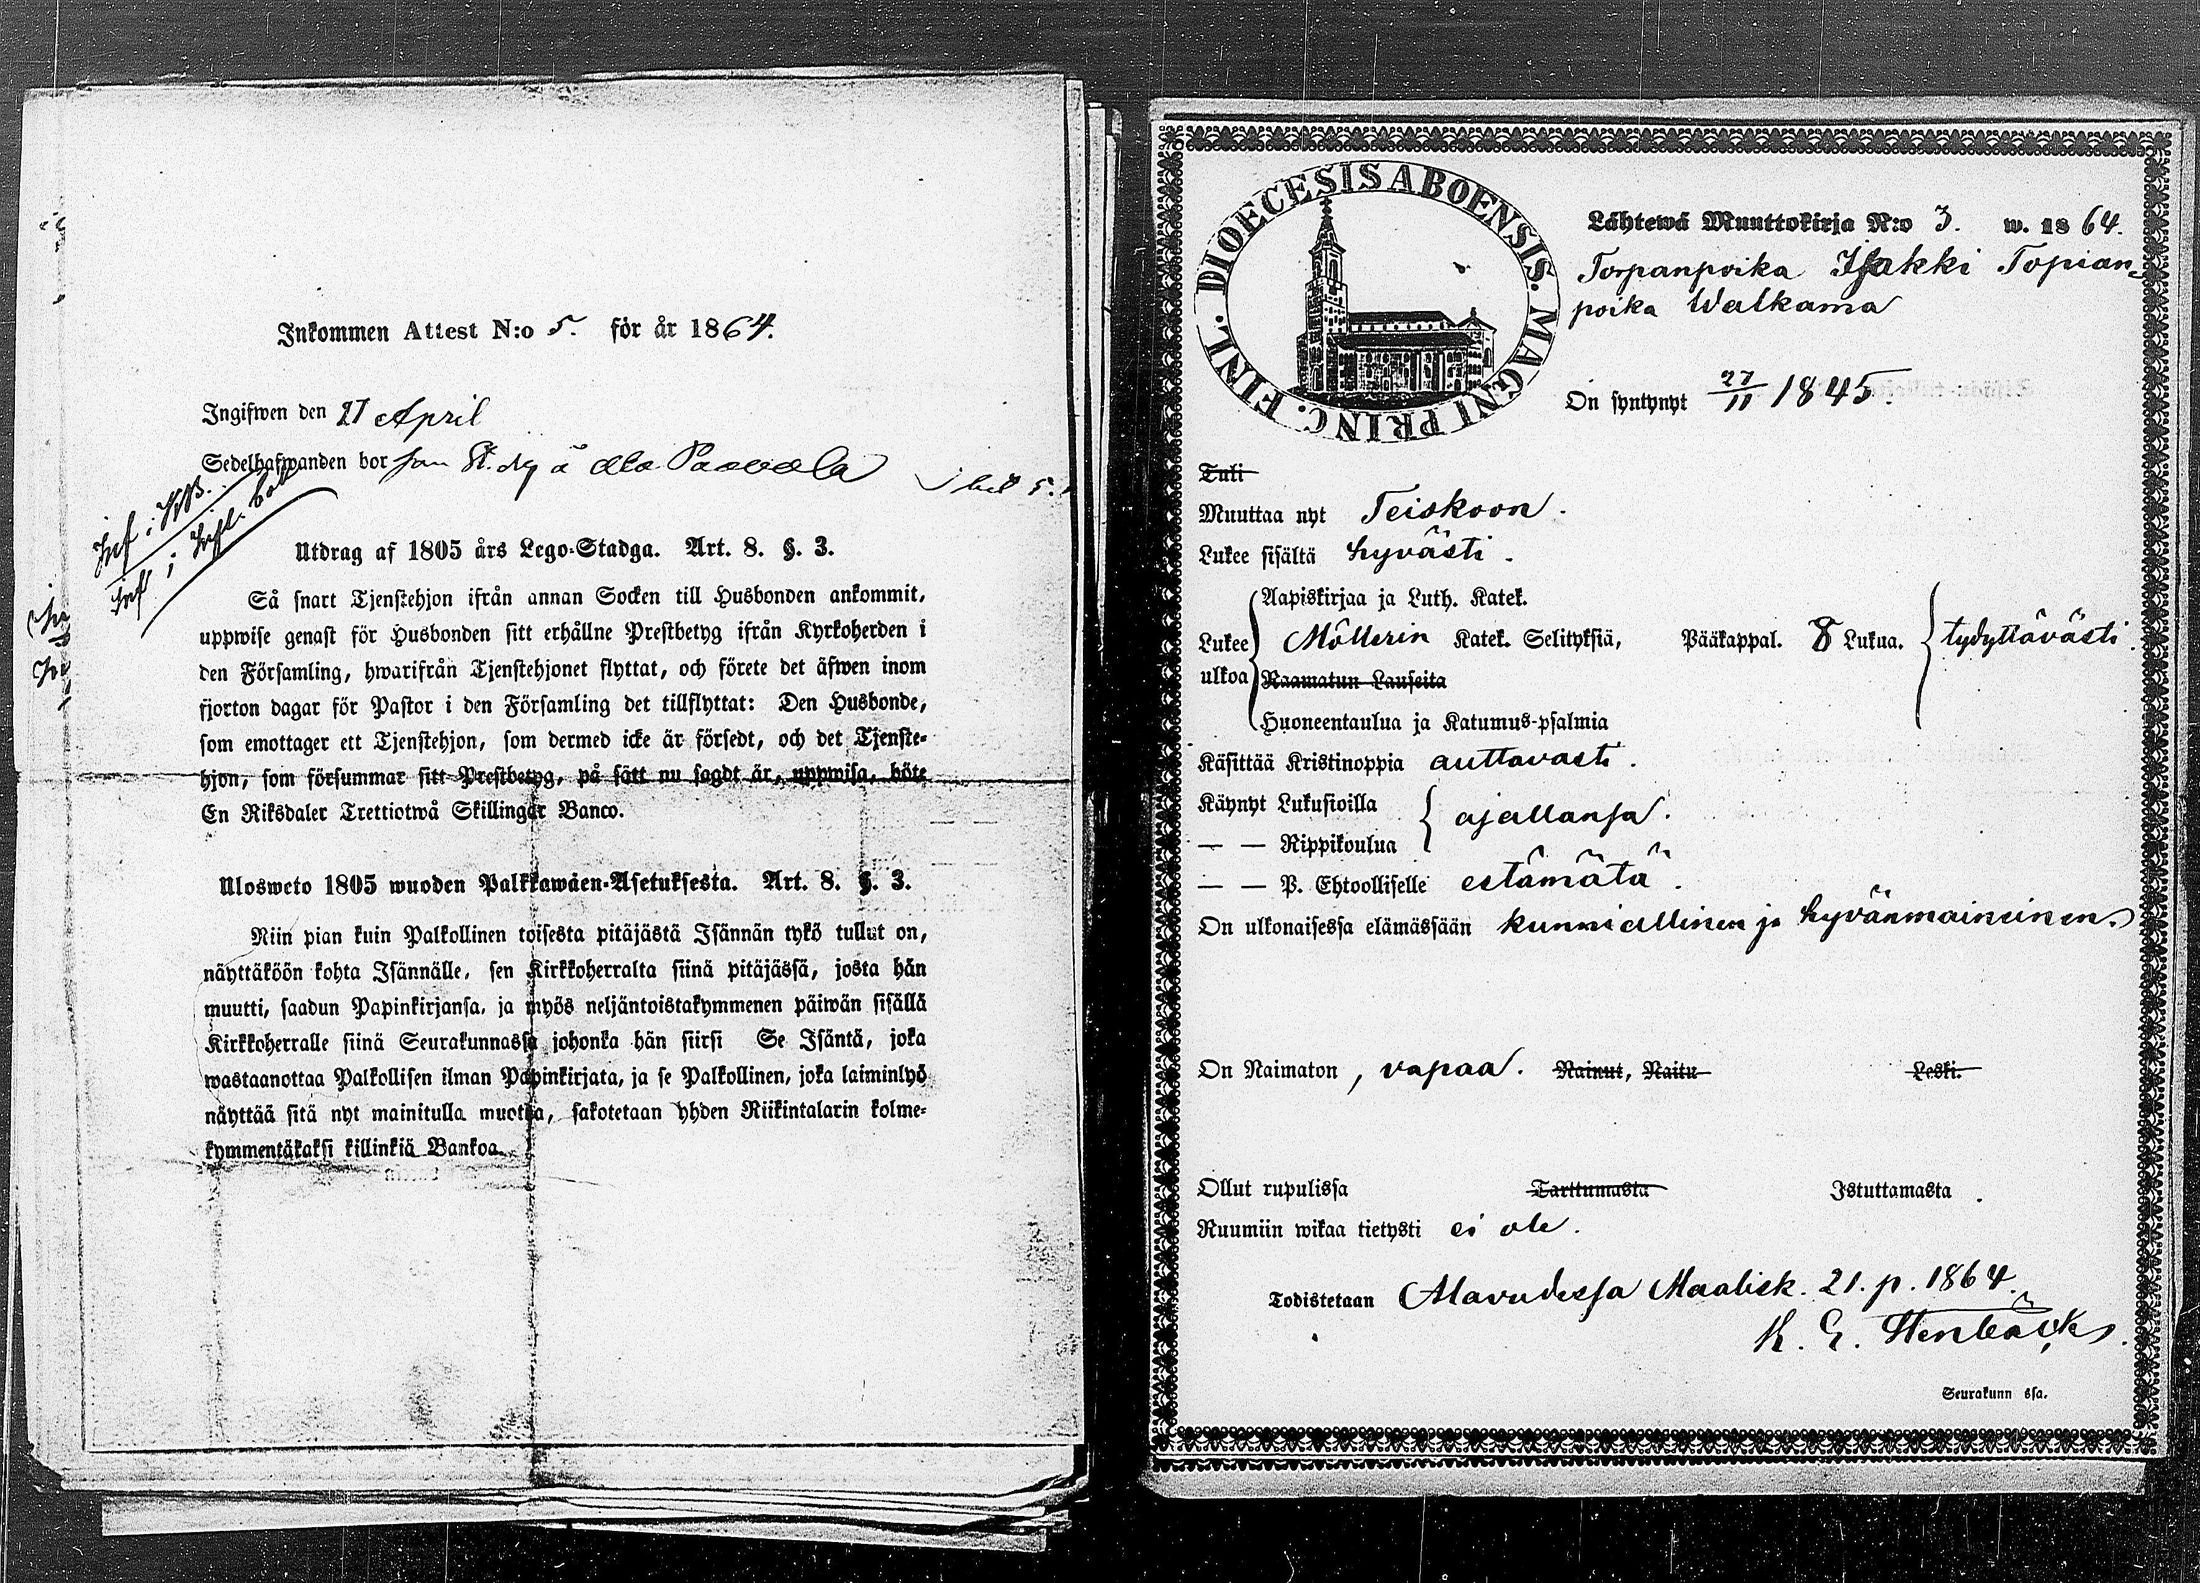 Inkommen Attest N:o 5. för år 1864.
Ingifwen den 21 April
Sedelhafwanden bor som St. dg å Ala Paavola
Inf. i
Inf. i
Utdrag af 1805 års Lego-Stadga. Art. 8. §. 3.
Så snart Tjenstehjon ifrån annan Socken till Husbonden ankommit,
uppwise genast för Husbonden sitt erhållne Prestbetyg ifrån Kyrkoherden i
den Församling, hwarifrån Tjenstehjonet flyttat, och förete det äfwen inom
fjorton dagar för Pastor i den Församling det tillflyttat: Den Husbonde,
som emottager ett Tjenstehjon, som dermed icke är försedt, och det Tjenste-
hjon, som försummar sitt Prestbetyg, på sätt nu sagdt är, uppwisa, böte
En Riksdaler Trettiotwå Skillingar Banco.
Ulosweto 1805 wuoden Palkkawäen-Asetuksesta. Art. 8. §. 3.
Niin pian kuin Palkollinen toisesta pitäjästä Isännän tykö tullut on,
näyttäköön kohta Isännälle, sen Kirkkoherralta siinä pitäjässä, josta hän
muutti, saadun Papinkirjansa, ja myös neljäntoistakymmenen päiwän sisällä
Kirkkoherralle siinä Seurakunnassa johonka hän siirsi Se Isäntä, joka
wastaanottaa Palkollisen ilman Papinkirjata, ja se Palkollinen, joka laiminlyö
näyttää sitä nyt mainitulla muotoa, sakotetaan yhden Riikintalarin kolme-
kymmentäkaksi killinkiä Bankoa.
DIOECESIS ABOENSIS. MAGNI PRINC. FINL.
Lähtewä Muuttokirja N:o 3. w. 1864.
Torpanpoika Isakki Topian-
poika Walkama
On syntynyt 27/11 1845.
Tuli
Muuttaa nyt Teiskoon.
Lukee sisältä hyvästi.
Aapiskirjaa ja Luth. Katek.
Lukee ulkoa Möllerin Katek. Selityksiä, Pääkappal. 8 Lukua. tydyttävästi.
Raamatun Lauseita
Huoneentaulua ja Katumus-psalmia
Käsittää Kristinoppia auttavasti.
Käynyt Lukusioilla
— — Rippikoulua ajallansa.
— — P. Ehtoolliselle estämätä.
On ulkonaisessa elämässään kunniallinen ja hyvänmaineinen.
On Naimaton, vapaa. Nainut, Naitu Leski.
Ollut rupulissa Tarttumasta Istuttamasta.
Ruumiin wikaa tietysti ei ole.
Todistetaan Alavudessa Maalisk. 21. p. 1864.
K. E. Stenbäck.
Seurakunn ssa.